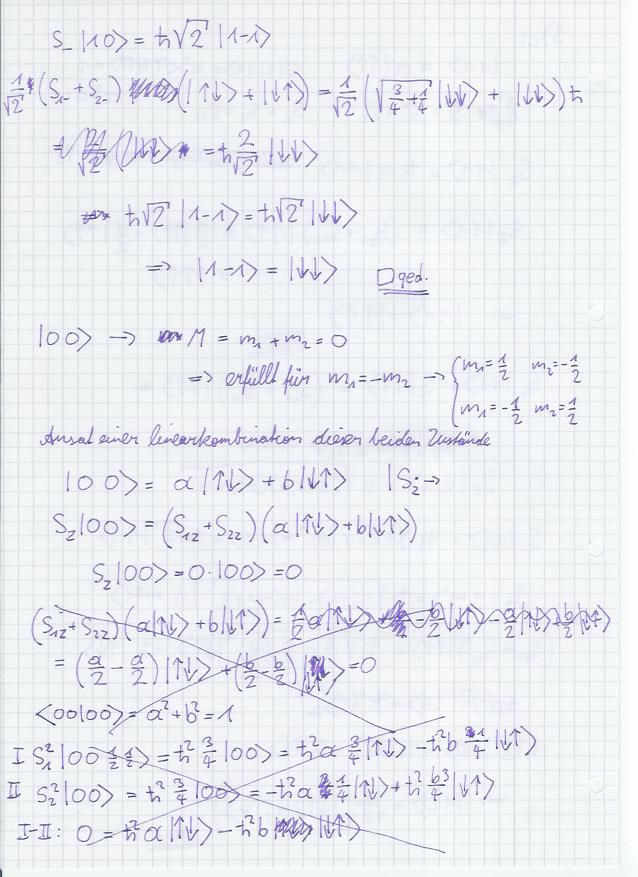 S_- |1 0⟩ = ħ√2 |1 -1⟩
1/√2 (S_1- + S_2-) (|↑↓⟩ + |↓↑⟩) = 1/√2 (√(3/4 + 1/4) |↓↓⟩ + |↓↓⟩) ħ
= ħ 2/√2 |↓↓⟩
ħ√2 |1 -1⟩ = ħ√2 |↓↓⟩
⇒ |1 -1⟩ = |↓↓⟩ □ qed.
|0 0⟩ → M = m_1 + m_2 = 0
⇒ erfüllt für m_1 = -m_2 → { m_1 = 1/2 m_2 = -1/2
m_1 = -1/2 m_2 = 1/2
Ansat einer linearkombination dieser beiden Zustände
|0 0⟩ = a |↑↓⟩ + b |↓↑⟩ | S_z →
S_z |00⟩ = (S_1z + S_2z) (a |↑↓⟩ + b |↓↑⟩)
S_z |00⟩ = 0 · |00⟩ = 0
(S_1z + S_2z) (a |↑↓⟩ + b |↓↑⟩) = 1/2 a |↑↓⟩ - b/2 |↓↑⟩ - a/2 |↑↓⟩ + b/2 |↓↑⟩
= (a/2 - a/2) |↑↓⟩ + (b/2 - b/2) |↓↑⟩ = 0
⟨00|00⟩ = a² + b² = 1
I S_1² |00 1/2 1/2⟩ = ħ² 3/4 |00⟩ = ħ² a 3/4 |↑↓⟩ - ħ² b 1/4 |↓↑⟩
II S_2² |00⟩ = ħ² 3/4 |00⟩ = -ħ² a 1/4 |↑↓⟩ + ħ² b 3/4 |↓↑⟩
I-II: 0 = ħ² a |↑↓⟩ - ħ² b |↓↑⟩